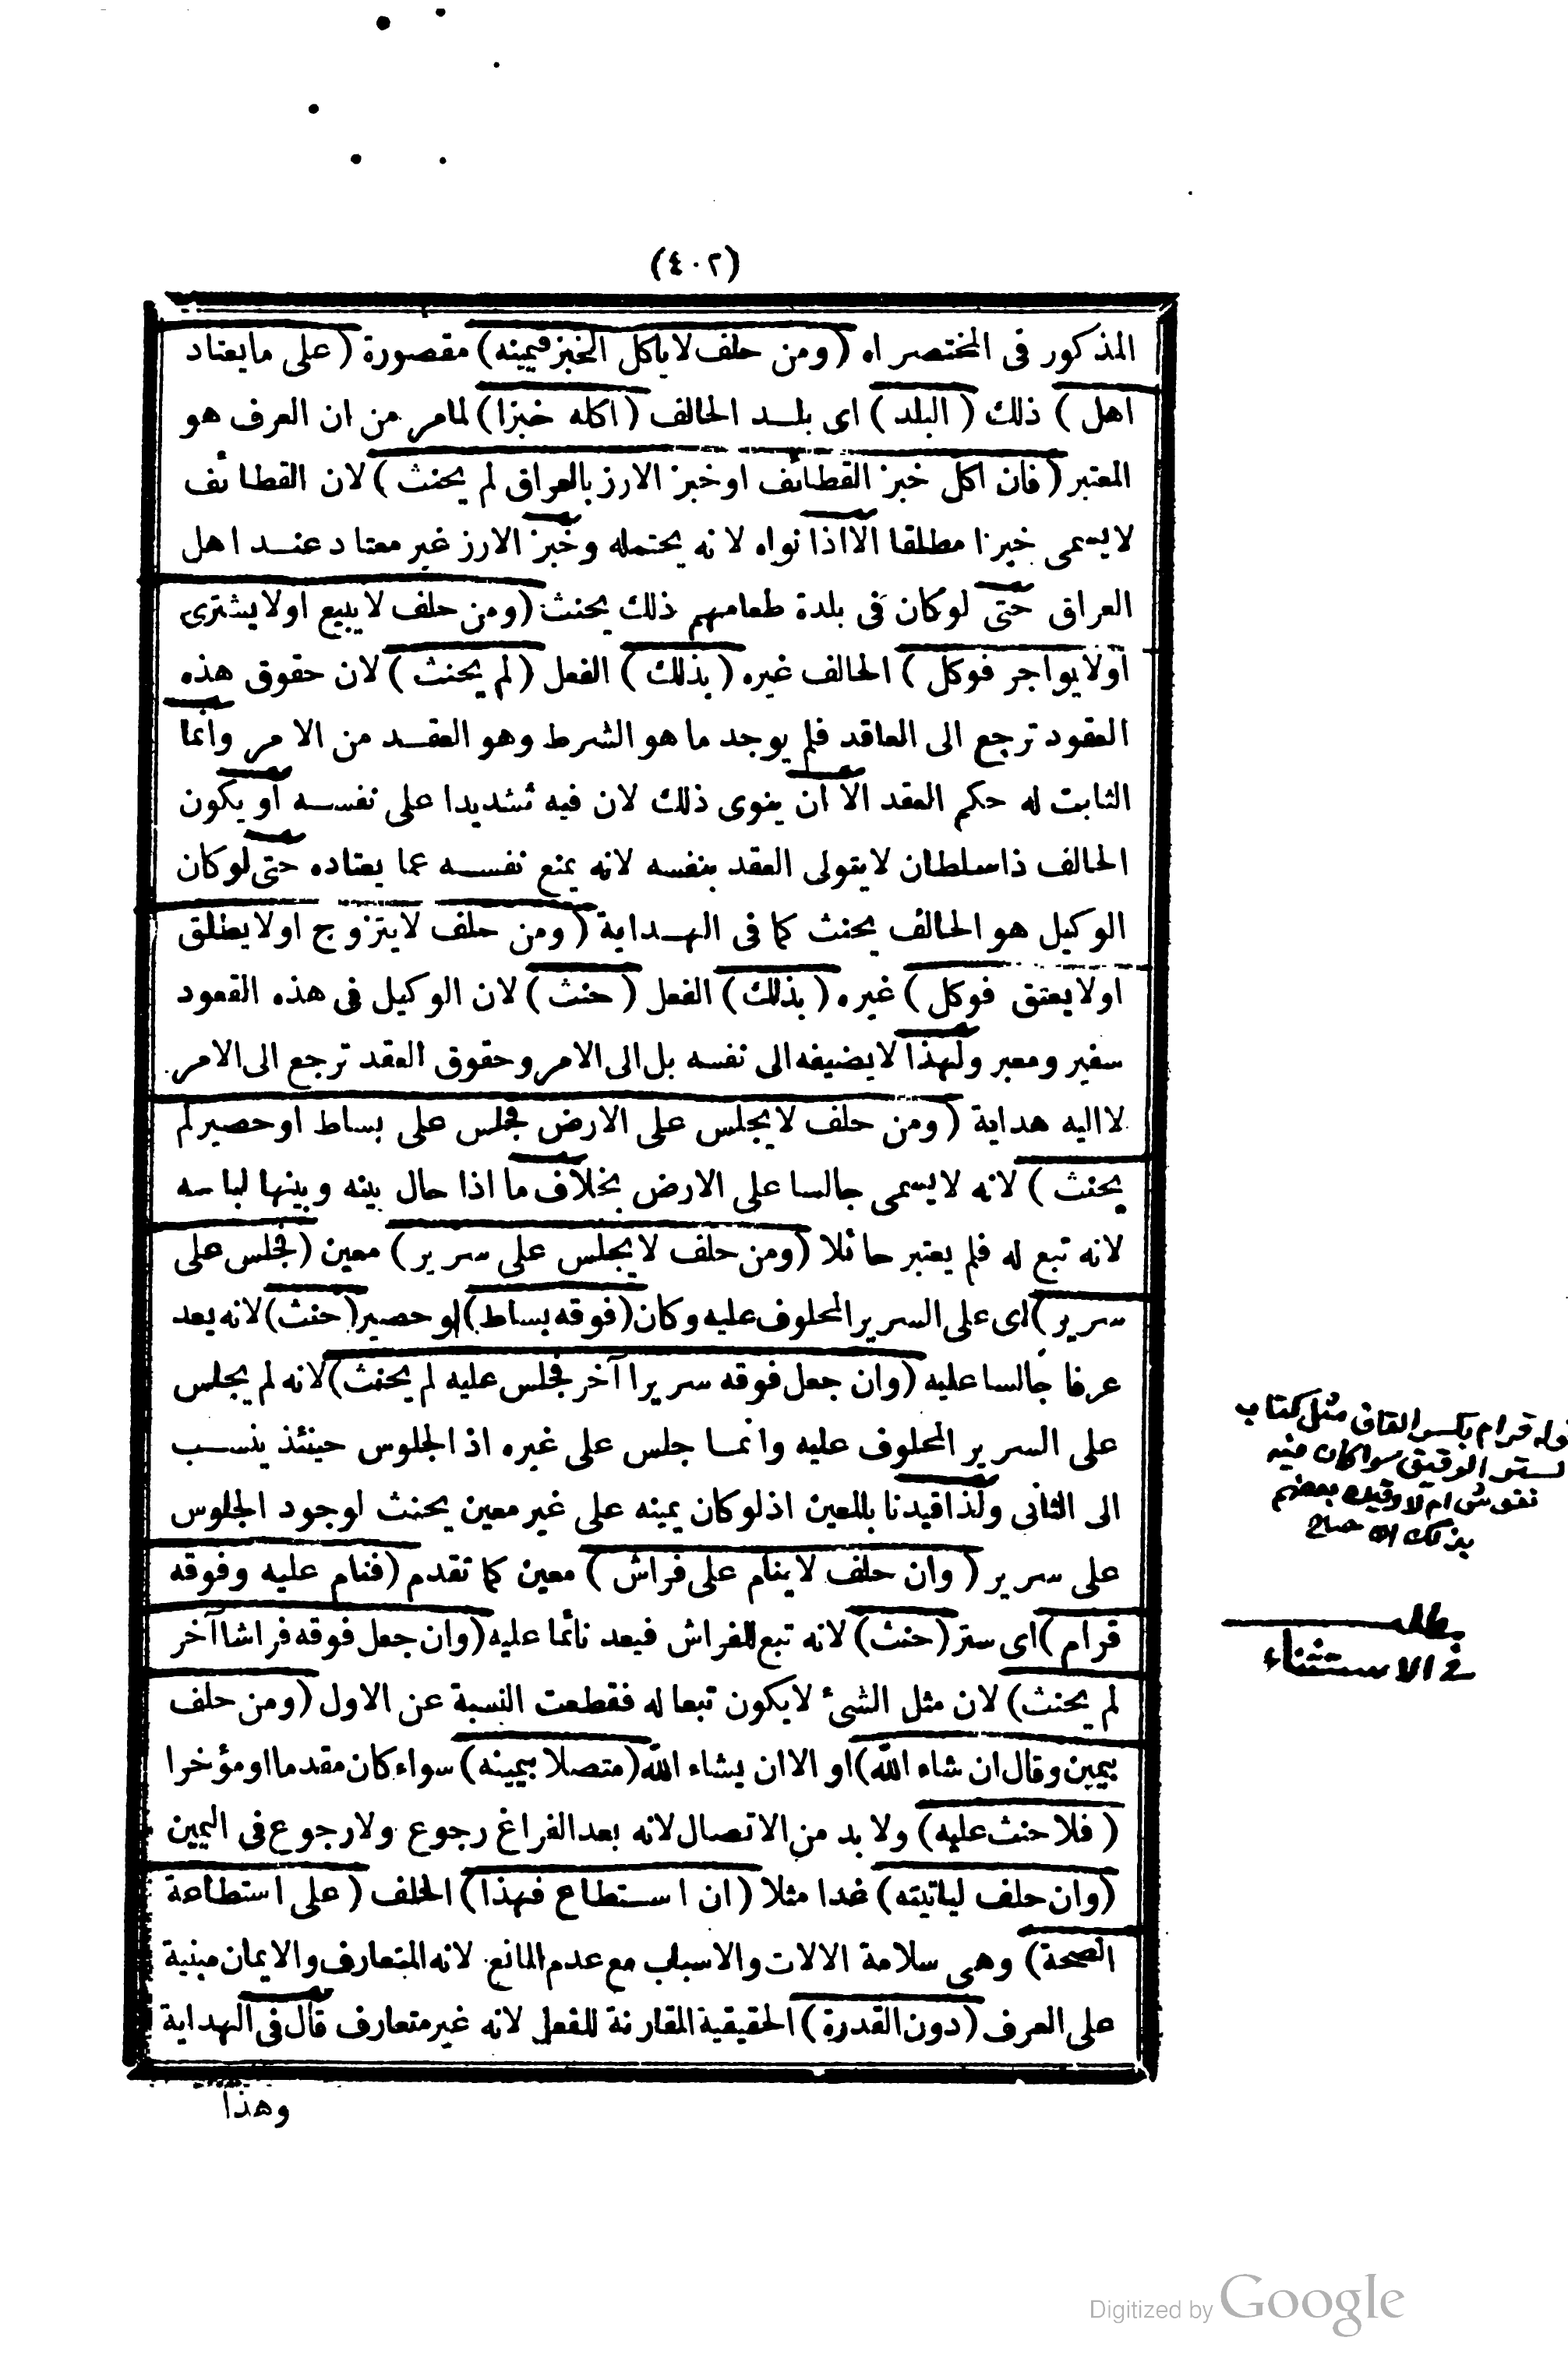 (٤٠٢)
المذكور فى المختصر اه (ومن حلف لاياكل الخبز فيمينه) مقصورة (على مايعتاد
اهل) ذلك (البلد) اى بلد الحالف (اكله خبزا) لمامر من ان العرف هو
المعتبر (فان اكل خبز القطائف اوخبز الارز بالعراق لم يحنث) لان القطائف
لايسمى خبزا مطلقا الااذا نواه لانه يحتمله وخبز الارز غير معتاد عند اهل
العراق حتى لوكان فى بلدة طعامهم ذلك يحنث (ومن حلف لايبيع اولايشترى
اولايواجر فوكل) الحالف غيره (بذلك) الفعل (لم يحنث) لان حقوق هذه
العقود ترجع الى العاقد فلم يوجد ما هو الشرط وهو العقد من الامر وانما
الثابت له حكم العقد الا ان ينوى ذلك لان فيه تشديدا على نفسه او يكون
الحالف ذاسلطان لايتولى العقد بنفسه لانه يمنع نفسه عما يعتاده حتى لوكان
الوكيل هو الحالف يحنث كما فى الهداية (ومن حلف لايتزوج اولايطلق
اولايعتق فوكل) غيره (بذلك) الفعل (حنث) لان الوكيل فى هذه العقود
سفير ومعبر ولهذا لايضيفه الى نفسه بل الى الامر وحقوق العقد ترجع الى الامر
لااليه هداية (ومن حلف لايجلس على الارض فجلس على بساط اوحصير لم
يحنث) لانه لايسمى جالسا على الارض بخلاف ما اذا حال بينه وبينها لباسه
لانه تبع له فلم يعتبر حائلا (ومن حلف لايجلس على سرير) معين (فجلس على
سرير) اى على السرير المحلوف عليه وكان (فوقه بساط) او حصير (حنث) لانه يعد
عرفا جالسا عليه (وان جعل فوقه سريرا آخر فجلس عليه لم يحنث) لانه لم يجلس
على السرير المحلوف عليه وانما جلس على غيره اذ الجلوس حينئذ ينسب
الى الثانى ولذا قيدنا بالمعين اذلوكان يمينه على غير معين يحنث لوجود الجلوس
على سرير (وان حلف لاينام على فراش) معين كما تقدم (فنام عليه وفوقه
قرام) اى ستر (حنث) لانه تبع للفراش فيعد نائما عليه (وان جعل فوقه فراشا آخر
لم يحنث) لان مثل الشئ لايكون تبعا له فقطعت النسبة عن الاول (ومن حلف
بيمين وقال ان شاء الله) او الا ان يشاء الله (متصلا بيمينه) سواء كان مقدما او مؤخرا
(فلا حنث عليه) ولا بد من الاتصال لانه بعد الفراغ رجوع ولارجوع فى اليمين
(وان حلف لياتينه) غدا مثلا (ان استطاع فهذا) الحلف (على استطاعة
الصحة) وهى سلامة الالات والاسباب مع عدم المانع لانه المتعارف والايمان مبنية
على العرف (دون القدرة) الحقيقية المقارنة للفعل لانه غير متعارف قال فى الهداية
وهذا
قوله قرام بكسر القاف مثل كتاب
الستر الرقيق سواكان فيه
نقوش ام لا وقيده بعضهم
بذلك اه
مطلب
فى الاستثناء
Digitized by Google